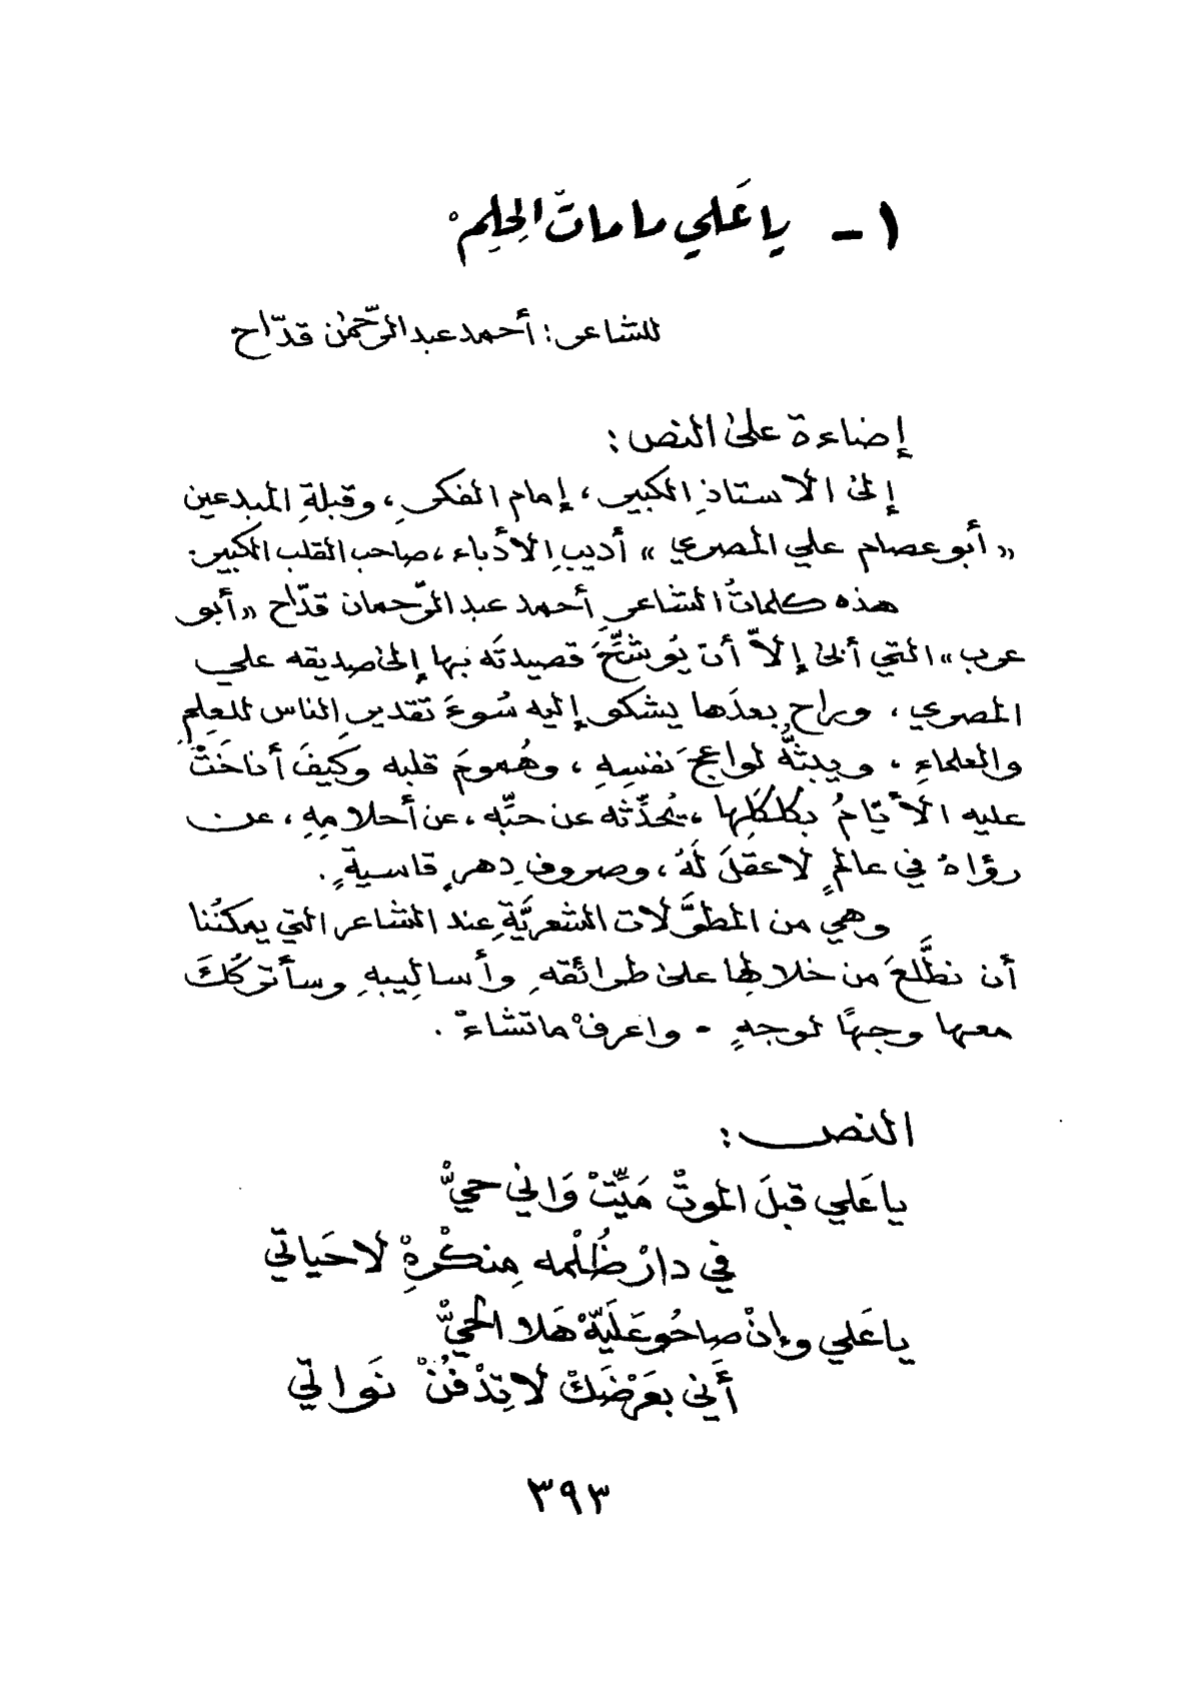 ١ - يا عَلي ما ماتّ الحِلِمْ
للشاعر: أحمد عبد الرّحمٰن قدّاح
إضاءة علىٰ النص:
إلىٰ الاستاذِ الكبير، إمام الفكرِ، وقبلةِ المبدعين
«أبو عصام علي المصري» أديبِ الأدباء، صاحب القلب الكبير.
هذه كلماتُ الشاعرِ أحمد عبد الرّحمان قدّاح «أبو
عرب» التي أبىٰ إلاّ أن يُوشِّحَ قصيدتَه بها إلىٰ صديقه علي
المصري، وراح بعدَها يشكو إليه سُوءَ تقديرِ الناس للعِلمِ
والعلماءِ، ويبثُّه لواعجَ نفسِهِ، وهُمومَ قلبه وكَيفَ أناخَتْ
عليه الأيّامُ بكلكَلِها، يُحدِّثه عن حبِّه، عن أحلامِهِ، عن
رؤاهُ في عالمٍ لا عقلَ لَهُ، وصروفِ دهرٍ قاسيةٍ.
وهي من المطوَّلات الشعريَّةِ عند الشاعر التي يمكنُنا
أن نطَّلعَ من خلالها علىٰ طرائقهِ وأسالِيبهِ وسأتركُكَ
معها وجهًا لوجهٍ - واعرفْ ما تشاءْ.
النص:
يا عَلي قبلَ الموتْ مَيِّتْ وَاني حيّْ
في دارْ ظُلْمه مِنكْرِهْ لا حَياتي
يا عَلي وإنْ صاحُو عَلَيّهْ هَلا الحيّْ
أَني بعَرْضَكْ لا تِدْفُنْ نَواتي
٣٩٣